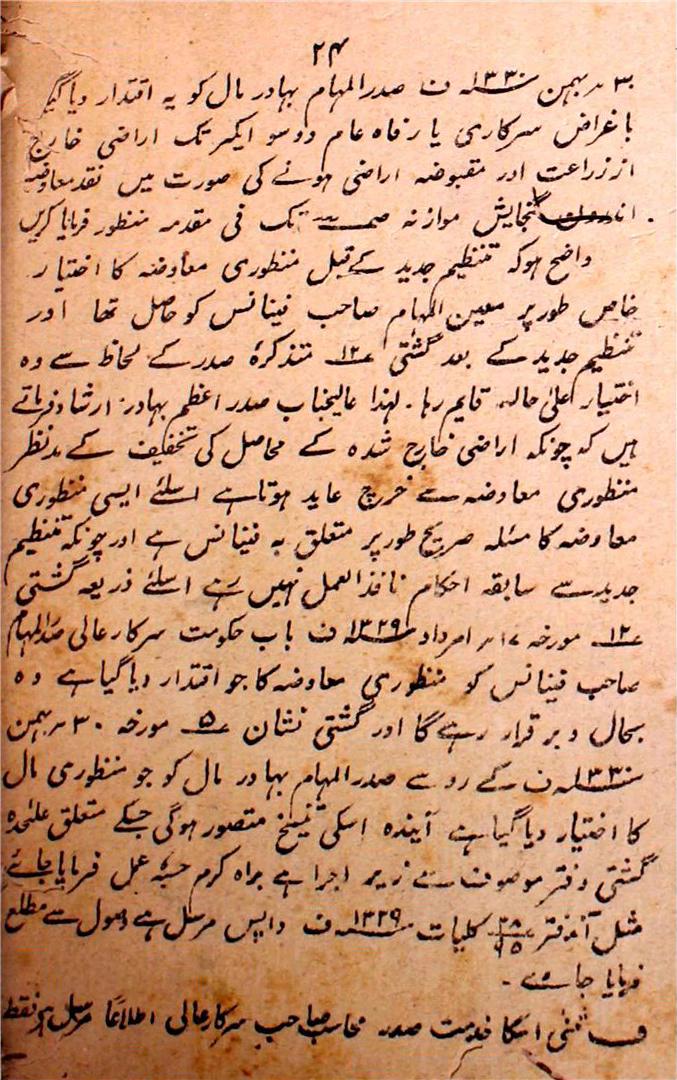 ۲۴
۳۰ بہمن ۱۳۳۰؁ ف صدر المہام بہادر مال کو یہ اقتدار دیا گیا
باغراض سرکاری یا رفاہ عام دوسو ایکر تک اراضی خارج
از زراعت اور مقبوضہ اراضی ہونے کی صورت میں نقد معاوضہ
گنجایش موازنہ تک فی مقدمہ منظور فرمایا کریں
واضح ہو کہ تنظیم جدید کے قبل منظوری معاوضہ کا اختیار
خاص طور پر معین المہام صاحب فینانس کو حاصل تھا اور
تنظیم جدید کے بعد گشتی ۱۲ متذکرۂ صدر کے لحاظ سے وہ
اختیار علیٰ حالہ قایم رہا۔ لہذا عالیجناب صدر اعظم بہادر ارشاد فرماتے
ہیں کہ چونکہ اراضی خارج شدہ کے محاصل کی تخفیف کے مدنظر
منظوری معاوضہ سے خرچ عاید ہوتا ہے اسلئے ایسی منظوری
معاوضہ کا مسئلہ صریح طور پر متعلق بہ فینانس ہے اور چونکہ تنظیم
جدید سے سابقہ احکام نافذ العمل نہیں رہے اسلئے ذریعہ گشتی
۱۲ مورخہ ۱۷ امرداد ۱۳۲۹؁ ف باب حکومت سرکار عالی صدر المہام
صاحب فینانس کو منظوری معاوضہ کا جو اقتدار دیا گیا ہے وہ
بحال و برقرار رہے گا اور گشتی نشان ۵ مورخہ ۳۰ بہمن
۱۳۳۰؁ ف کے رو سے صدر المہام بہادر مال کو جو منظوری مال
کا اختیار دیا گیا ہے آیندہ اسکی تنسیخ متصور ہوگی جسکے متعلق علٰحدہ
گشتی دفتر موصوف سے زیر اجرا ہے براہ کرم حسبہ عمل فرمایا جائے
مثل آمد دفتر ۲۸/۹۵ کلیات ۱۳۲۹؁ ف واپس مرسل ہے وصول سے مطلع
فرمایا جائے۔
ف مثنیٰ اسکا خدمت صدر محاسب صاحب سرکار عالی اطلاعاً مرسل ہے فقط